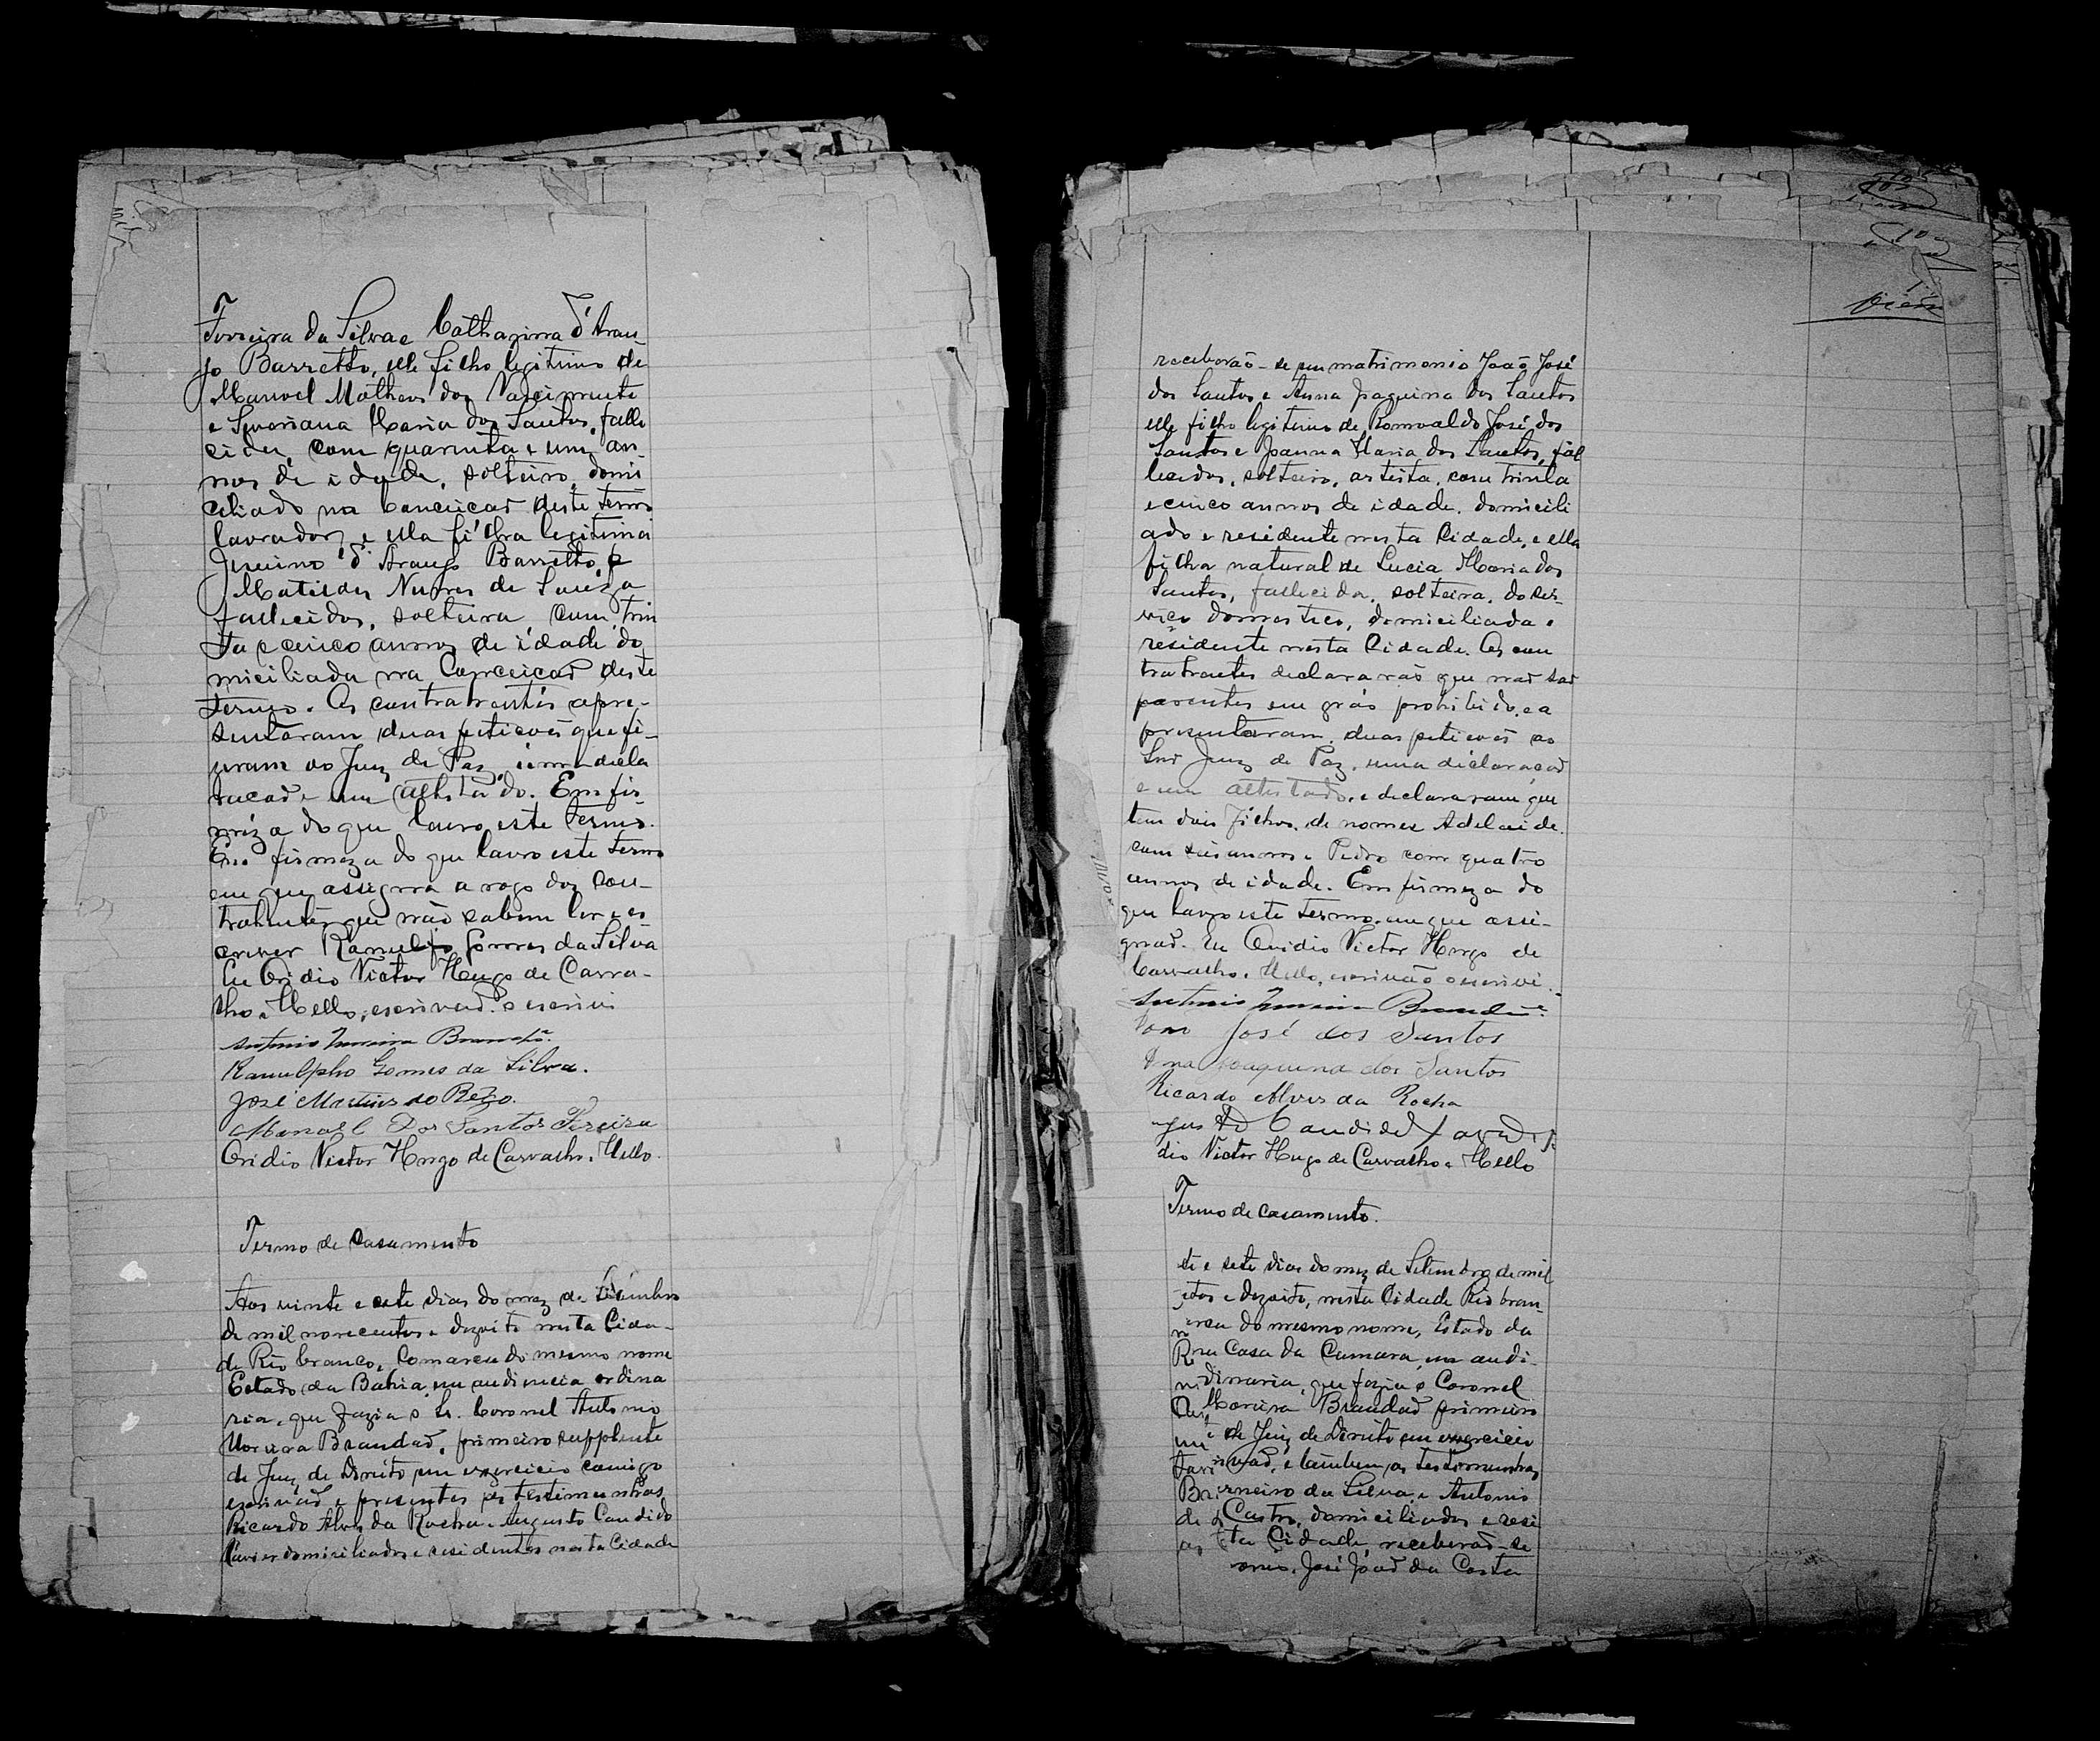 Ferreira da Silva e Catharina d'Arau-
jo Barretto, elle filho legitimo de
Manoel Matheus do Nascimento
e Maria dos Santos, falle
cidos, com quarenta e um an-
nos de idade, solteiro, domi
ciliado na Conceicaõ deste termo
lavrador, e ella filha legitima
d'Araujo Barretto, e
Matildes Nunes de Souza
fallecidos, solteira, com trin
ta e cinco annos de idade do
miciliada na Conceicaõ deste
termo. Os contrahentes apre-
sentaram duas peticoẽs que fi-
seram ao Juiz de Paz, uma decla
racaõ e um attestado. Em fir
meza do que lavro este termo.
Em firmeza do que lavro este termo
em que assigna a rogo dos con-
trahentes que não sabem ler e es
crever Ranulfo Gomes da Silva
Eu Ovidio Victor Hugo de Carva-
lho e Mello, escrivaõ o escrivi
Antonio Moreira Brandão.
Ranulpho Gomes da Silva.
José Martins do Rego.
Manoel Dos Santos Pereira
Ovidio Victor Hugo de Carvalho e Mello.
Termo de Casamento
Aos vinte e sete dias do mez de Setembro
de mil novecentos e dezoito nesta Cida-
de Rio branco, Comarca do mesmo nome
Estado da Bahia em audiencia ordina
ria, que fazia o Sr. Coronel Antonio
Moreira Brandaõ, primeiro supplente
de Juiz de Direito em exercicio comigo
escrivaõ e presentes as testimunhas
Ricardo Alves da Rocha e Augusto Candido
Xavier domiciliados e residentes nesta Cidade
receberaõ-se em matrimonio João José
dos Santos e Anna Joaquina dos Santos
elle filho legitimo de Romvaldo José dos
Santos e Joanna Maria dos Santos, fal
lecidos, solteiro, artista, com trinta
e cinco annos de idade, domicili
ado e residente nesta Cidade, e ella
filha natural de Lucia Maria dos
Santos, fallecida, solteira, do ser-
viço domestico, domiciliada e
residente nesta Cidade. Os con
trahentes declararaõ que naõ saõ
parentes em gráo prohibido, e a
presentaram duas peticoẽs ao
Snr Juiz de Paz, uma declaracaõ
e um attestado, e declararam que
tem dois filhos, de nomes Adelaide
com seis annos e Pedro com quatro
annos de idade. Em firmeza do
que lavro este termo em que assi-
gnaõ. Eu Ovidio Victor Hugo de
Carvalho e Mello, escrivão o escrivi.
Antonio Moreira Brandão
José dos Santos
Joaquina dos Santos
Ricardo Alves da Rocha
Candido
dio Victor Hugo de Carvalho e Mello
Termo de casamento.
te e sete dias do mez de Setembro de mil
e dezoito, nesta Cidade Rio bran-
do mesmo nome, Estado da
na Casa da Camara, em audi-
dinaria, que fazia o Coronel
Moreira Brandaõ primeiro
de Juiz de Direito em exercicio
e tambem as testimunhas
da Silva e Antonio
Castro, domiciliados e resi
ta Cidade, receberaõ-se
onio. José Joaõ da Costa